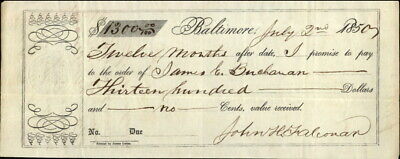 $1300 00/100 Baltimore, July 2nd 1850
Twelve Months after date, I promise to pay
to the order of James C. Buchanan
Thirteen hundred Dollars
and no Cents, value received.
No. Due John H.